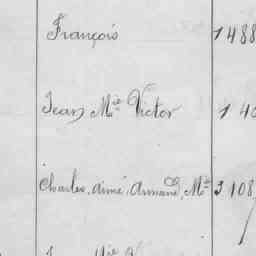 François 1488
Jean Mie Victor 140
Charles, Aimé, Armand, Mie 3108